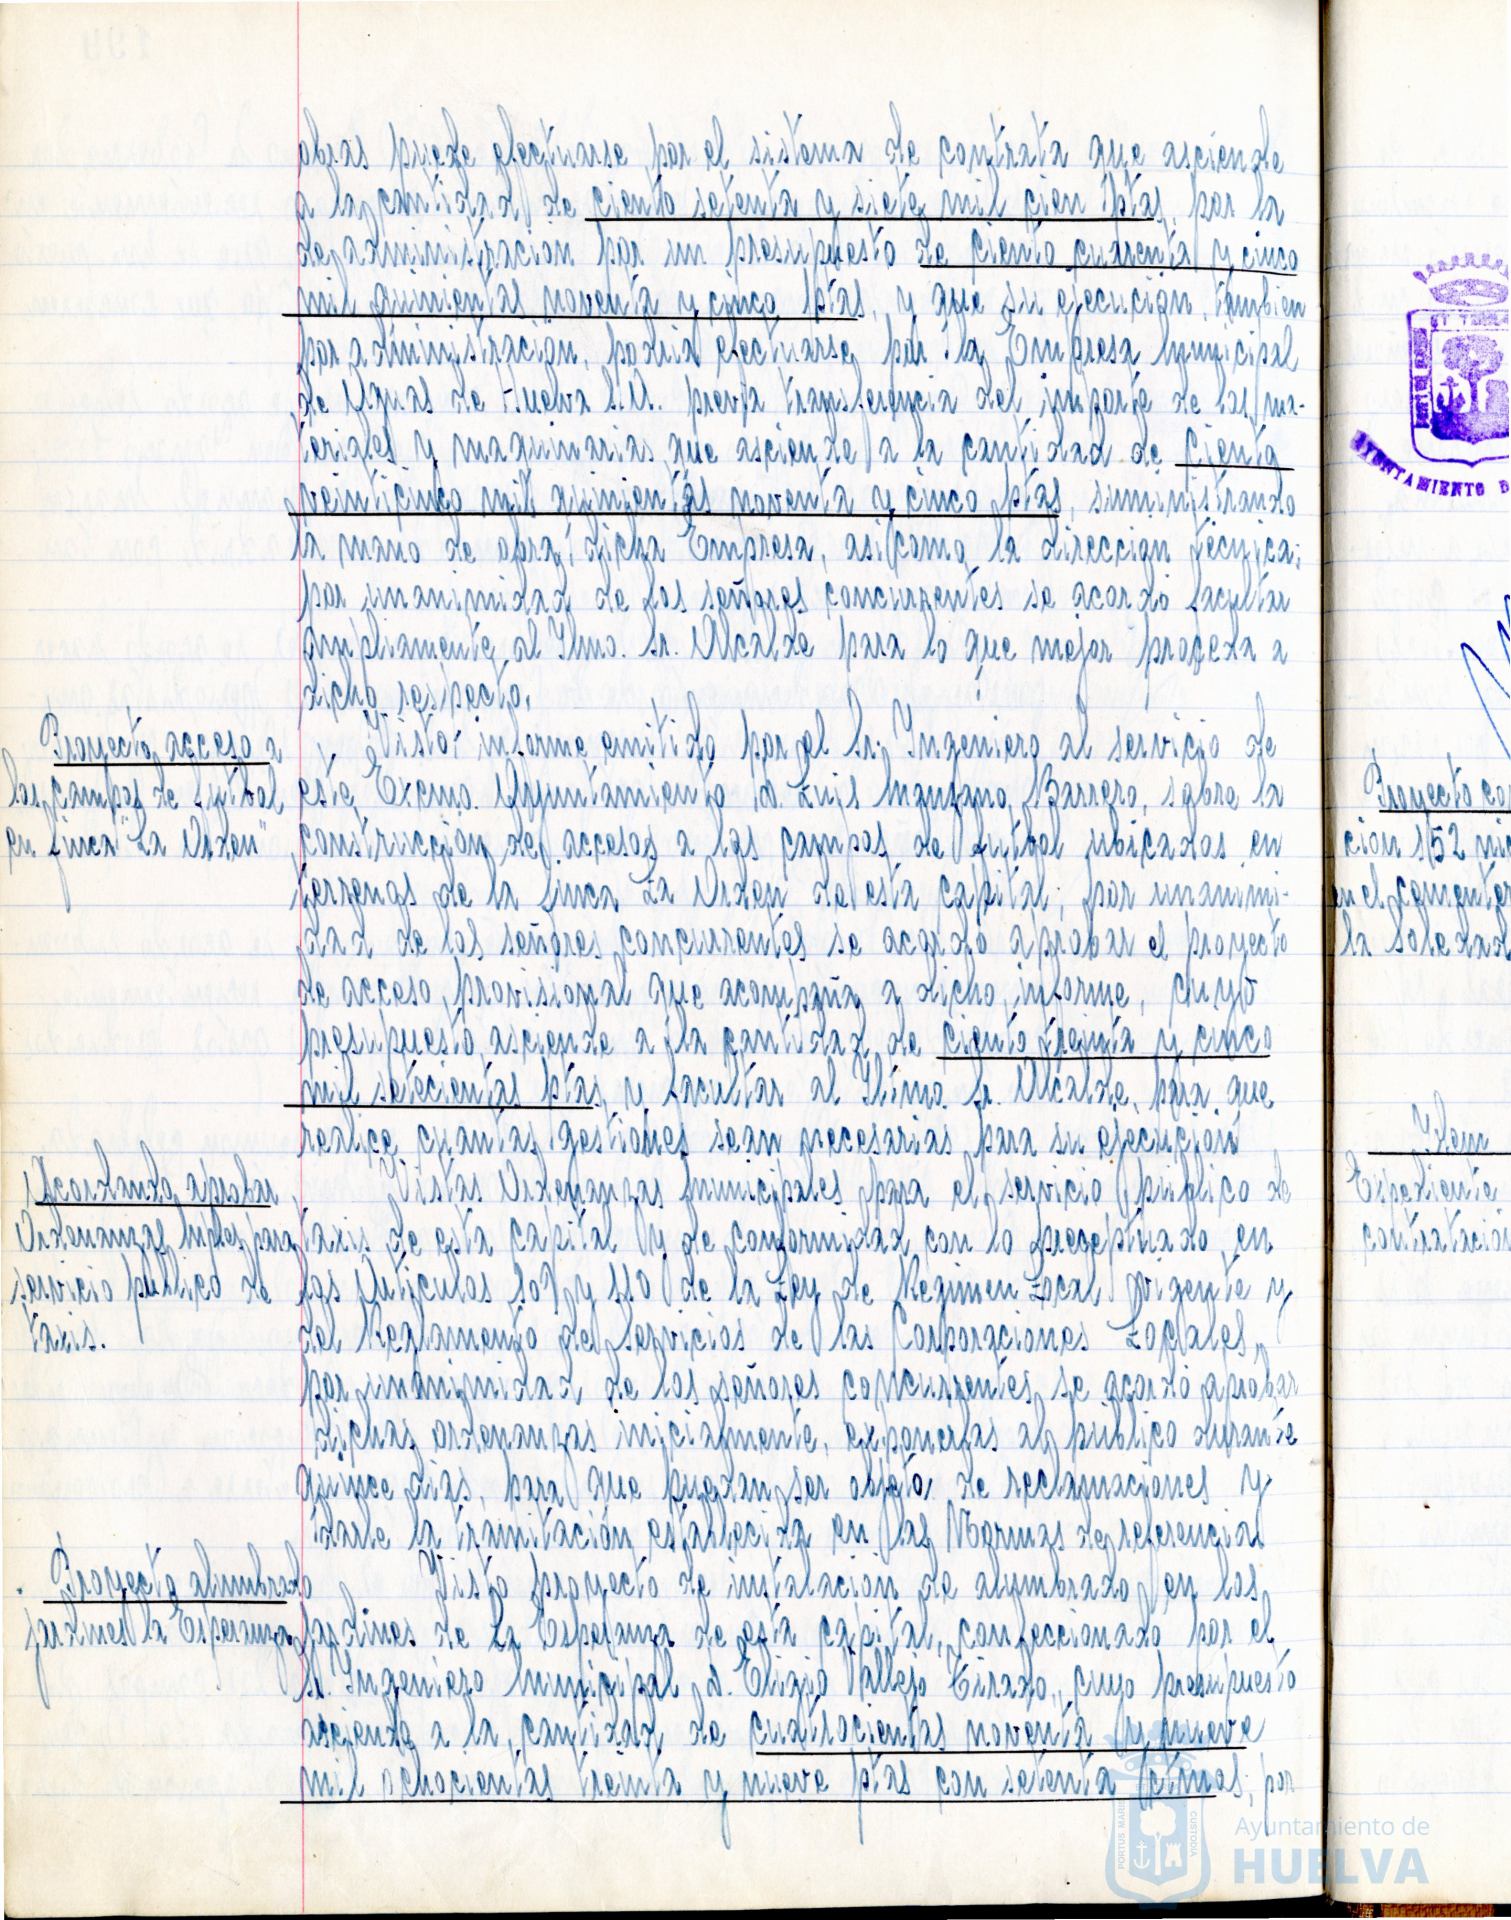 obras puede efectuarse por el sistema de contrata que asciende
a la cantidad de ciento setenta y siete mil cien ptas, por la
de administración por un presupuesto de ciento cuarenta y cinco
mil quinientas noventa y cinco ptas, y que su ejecución, tambien
por administración, podria efectuarse por la Empresa Municipal
de Aguas de Huelva S.A. previa transferencia del importe de los ma-
teriales y maquinarias, que asciende a la cantidad de ciento
veinticinco mil quinientas noventa y cinco ptas, suministrando
la mano de obra dicha Empresa, asi como la direccion tecnica;
por unanimidad de los señores concurrentes se acordó facultar
ampliamente al Ilmo. Sr. Alcalde para lo que mejor proceda a
dicho respecto.
Proyecto acceso a
los campos de futbol
en finca "La Orden"
Visto informe emitido por el Sr. Ingeniero al servicio de
este Excmo. Ayuntamiento, d. Luis Manzano Barrero, sobre la
construcción de accesos a los campos de futbol ubicados en
terrenos de la finca La Orden de esta capital; por unanimi-
dad de los señores concurrentes se acordó aprobar el proyecto
de acceso provisional que acompaña a dicho informe, cuyo
presupuesto asciende a la cantidad de ciento treinta y cinco
mil setecientas ptas, y facultar al Iltmo. Sr. Alcalde, para que
realice cuantas gestiones sean necesarias para su ejecución
Acordando aprobar
Ordenanzas Mples para
servicio publico de
taxis.
Vistas Ordenanzas Municipales para el servicio publico de
taxis de esta capital y de conformidad con lo preceptuado en
los Articulos 109 y 110 de la Ley de Regimen Local vigente y
del Reglamento de Servicios de las Corporaciones Locales,
por unanimidad de los señores concurrentes se acordó aprobar
dichas ordenanzas inicialmente, exponerlas al público durante
quince dias, para que puedan ser objeto de reclamaciones y
darle la tramitación establecida en las Normas de referencia
Proyecto alumbrado
jardines la Esperanza
Visto proyecto de instalacion de alumbrado en los
jardines de La Esperanza de esta capital, confeccionado por el
Sr. Ingeniero Municipal d. Eligio Vallejo Tirado, cuyo presupuesto
asciende a la cantidad de cuatrocientas noventa y nueve
mil ochocientas treinta y nueve ptas con setenta ctmos; por
AYUNTAMIENTO D
Proyecto con
cion 152 ni
en el cementer
la Soledad
Idem
Expediente
contratación
PORTUS MARIS
CUSTODIA
Ayuntamiento de
HUELVA